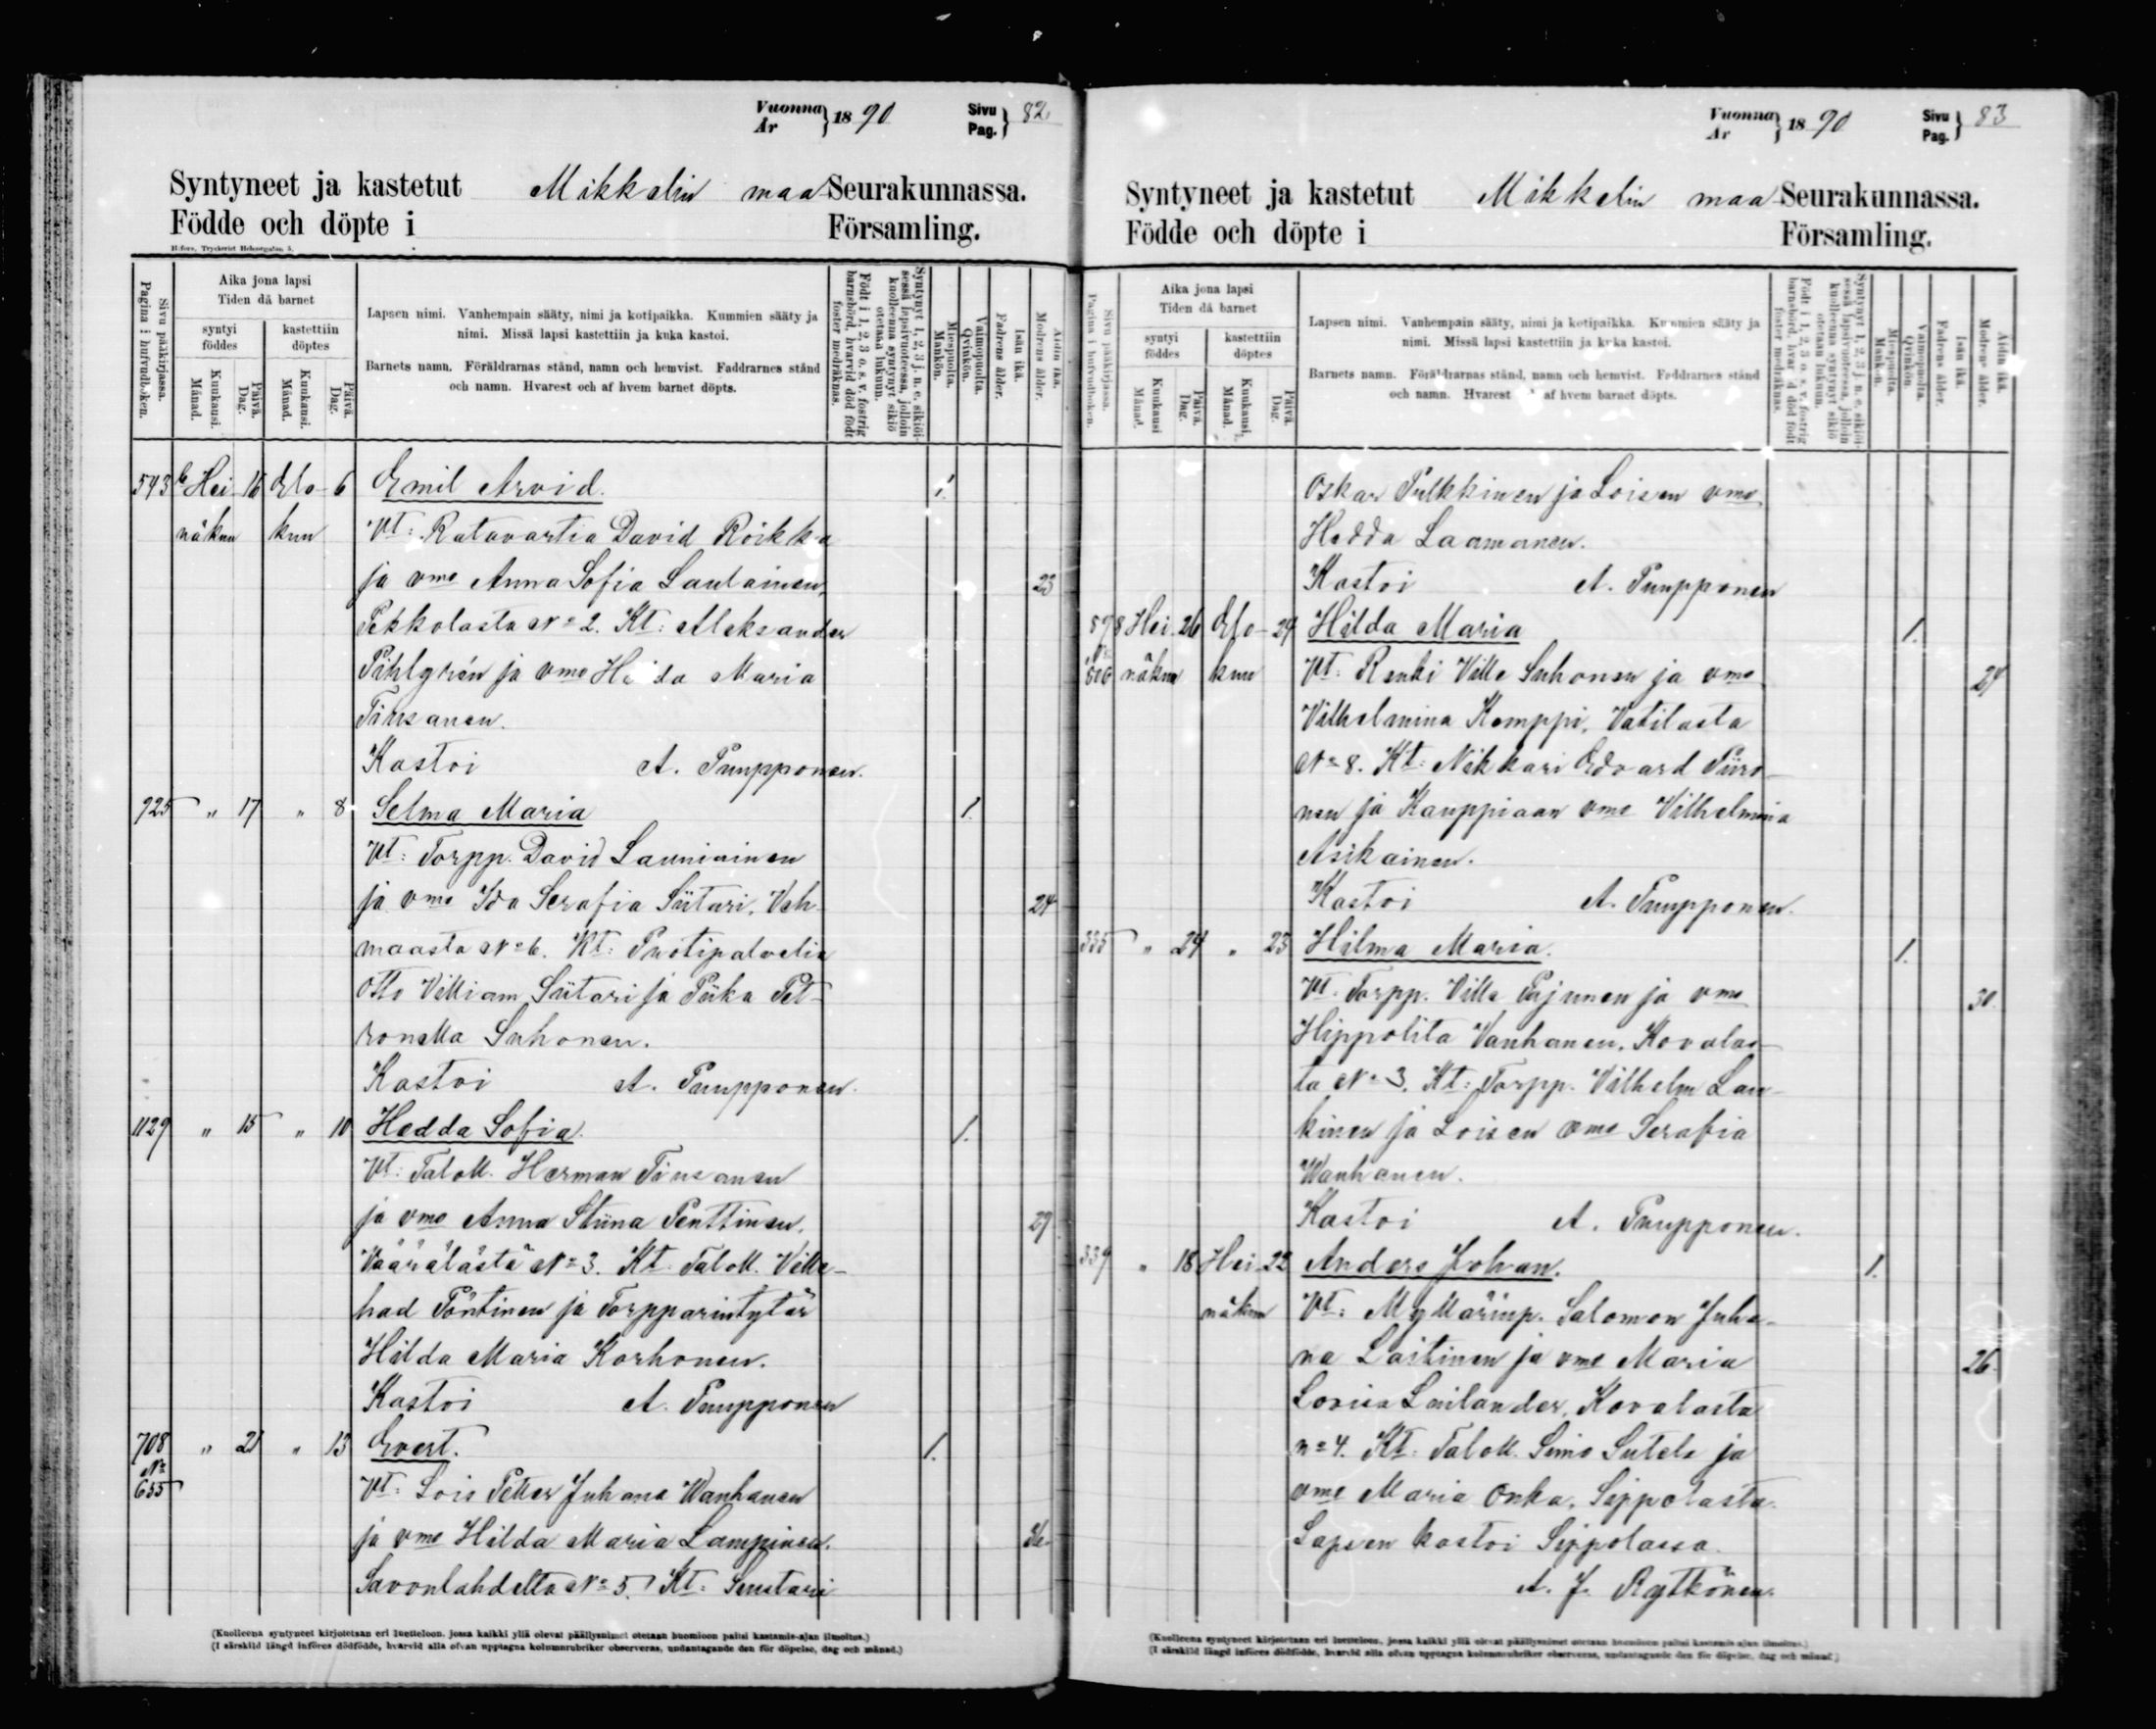 Vuonna År } 18 90 Sivu Pag. } 82.
Syntyneet ja kastetut Mikkelin maa Seurakunnassa.
Födde och döpte i Församling.
Sivu pääkirjassa. Pagina i hufvudboken.
Aika jona lapsi
Tiden då barnet
syntyi kastettiin
föddes döptes
Kuukausi. Månad. Päivä. Dag. Kuukausi. Månad. Päivä. Dag.
Lapsen nimi. Vanhempain sääty, nimi ja kotipaikka. Kummien sääty ja
nimi. Missä lapsi kastettiin ja kuka kastoi.
Barnets namn. Föräldrarnas stånd, namn och hemvist. Faddrarnes stånd
och namn. Hvarest och af hvem barnet döpts.
Syntynyt 1, 2, 3 j. n. e. sikiöi-
sessä lapsivuoteessa, jolloin
kuolleenna syntynyt sikiö
otetaan lukuun.
Född i 1, 2, 3 o. s. v. fostrig
barnsbörd, hvarvid död född
foster medräknas.
Miespuolta. Mankön.
Vaimopuolta. Qvinkön.
Isän ikä. Fadrens ålder.
Äidin ikä. Modrens ålder.
593 b Hei 16 Elo 6 Emil Arvid. 1.
näkuu kuu Vt: Ratavartia David Röikkä
ja vmo Anna Sofia Laulainen, 23
Pekkolasta No 2. Kt: Aleksander
Påhlgrén ja vmo Hilda Maria
Tiusanen.
Kastoi A. Pumpponen.
925 " 17 " 8 Selma Maria 1.
Vt: Torpp. David Launiainen
ja vmo Ida Serafia Siitari, Veh- 24
maasta No 6. Kt: Puotipalvelia
Otto Villiam Siitari ja Piika Pet-
ronella Suhonen.
Kastoi A. Pumpponen.
1129 " 15 " 10 Hedda Sofia. 1.
Vt: Taloll. Herman Tiusanen
ja vmo Anna Stiina Penttinen, 29
Väärälästä No 3. Kt. Taloll. Ville-
had Pöntinen ja Torpparintytär
Hilda Maria Korhonen.
Kastoi A. Pumpponen
708 " 21 " 13 Evert. 1.
No 655 Vt: Lois Petter Juhana Wanhanen
ja vmo Hilda Maria Lampinen. 36
Savonlahdelta No 5. Kt: Suutari
(Kuolleena syntyneet kirjotetaan eri luetteloon, jossa kaikki yllä olevat päällysnimet otetaan huomioon paitsi kastamis-ajan ilmoitus.)
(I särskild längd införes dödfödde, hvarvid alla ofvan upptagna kolumnrubriker observeras, undantagande den för döpelse, dag och månad.)
Vuonna År } 18 90 Sivu Pag. } 83
Syntyneet ja kastetut Mikkelin maa Seurakunnassa.
Födde och döpte i Församling.
Sivu pääkirjassa. Pagina i hufvudboken.
Aika jona lapsi
Tiden då barnet
syntyi kastettiin
föddes döptes
Kuukausi Månad. Päivä. Dag. Kuukausi. Månad. Päivä. Dag.
Lapsen nimi. Vanhempain sääty, nimi ja kotipaikka. Kummien sääty ja
nimi. Missä lapsi kastettiin ja kuka kastoi.
Barnets namn. Föräldrarnas stånd, namn och hemvist. Faddrarnes stånd
och namn. Hvarest af hvem barnet döpts.
Syntynyt 1, 2, 3 j. n. e. sikiöi-
sessä lapsivuoteessa, jolloin
kuolleenna syntynyt sikiö
otetaan lukuun.
Född i 1, 2, 3 o. s. v. fostrig
barnsbörd, hvarvid död född
foster medräknas.
Miespuolta. Mankön.
Vaimopuolta. Qvinkön.
Isän ikä. Fadrens ålder.
Äidin ikä. Modrens ålder.
Oskar Pulkkinen ja Loisen vmo
Hedda Laamanen.
Kastoi A. Pumpponen
878 Hei 26 Elo 24 Hilda Maria 1.
näkuu kuu Vt: Renki Ville Suhonen ja vmo 29
Vilhelmina Kemppi, Vatilasta
No 8. Kt: Nikkari Edvard Piiro-
nen ja Kauppiaan vmo Vilhelmina
Asikainen.
Kastoi A. Pumpponen.
335 " 24 " 23 Hilma Maria. 1.
Vt. Torpp. Ville Pajunen ja vmo 30.
Hippolita Vanhanen, Kovalas-
ta No 3. Kt: Torpp. Vilhelm Lau-
kinen ja Loisen vmo Serafia
Wanhanen.
Kastoi A. Pumpponen.
339 " 18 Hei 22 Anders Johan. 1.
näkuu Vt: Myllärinp. Salomon Juha-
na Laitinen ja vmo Maria
Lovisa Lailander, Kovalasta 26.
no 4. Kt: Taloll. Simo Sutela ja
vmo Maria Onka, Sippolasta.
Lapsen kastoi Sippolassa
A. J. Rytkönen.
(Kuolleena syntyneet kirjotetaan eri luetteloon, jossa kaikki yllä olevat päällysnimet otetaan huomioon paitsi kastamis-ajan ilmoitus.)
(I särskild längd införes dödfödde, hvarvid alla ofvan upptagna kolumnrubriker observeras, undantagande den för döpelse, dag och månad)